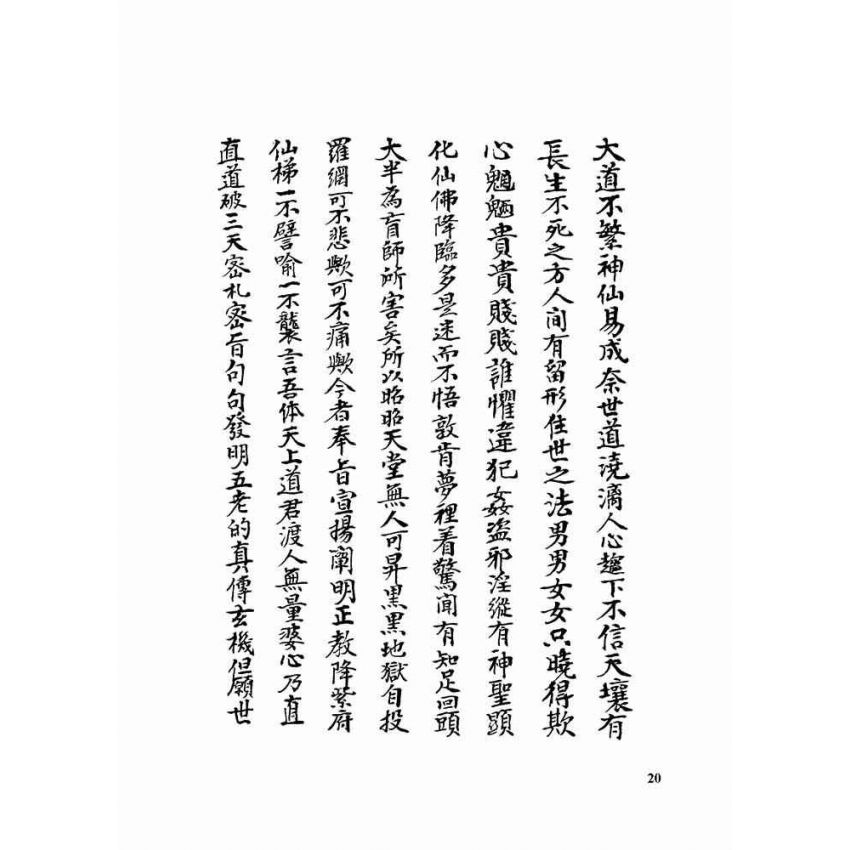 大道不繁神仙易成奈世道澆漓人心趨下不信天壤有
長生不死之方人间有留形住世之法男男女女只曉得欺
心魍魎貴貴賤賤誰懼違犯姦盗邪淫縱有神聖顕
化仙佛降臨多是迷而不悟敦肯夢裡着驚间有知足回頭
大半為盲師所害矣所以昭昭天堂無人可昇黑黑地獄自投
羅網可不悲歟可不痛歟今者奉旨宣揚闡明正教降紫府
仙梯一不譬喻一不襲言吾体天上道君渡人無量婆心乃直
直道破三天密札密旨句句發明五老的真傳玄機但願世
20